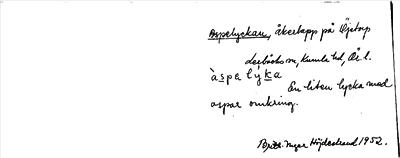 Aspelyckan, åkerlapp på Öjetorp
Lerbäcks sn, Kumla hd, Ör l.
àspe lýka
En liten lycka med
aspar omkring.
Inger Höjdestrand 1952.